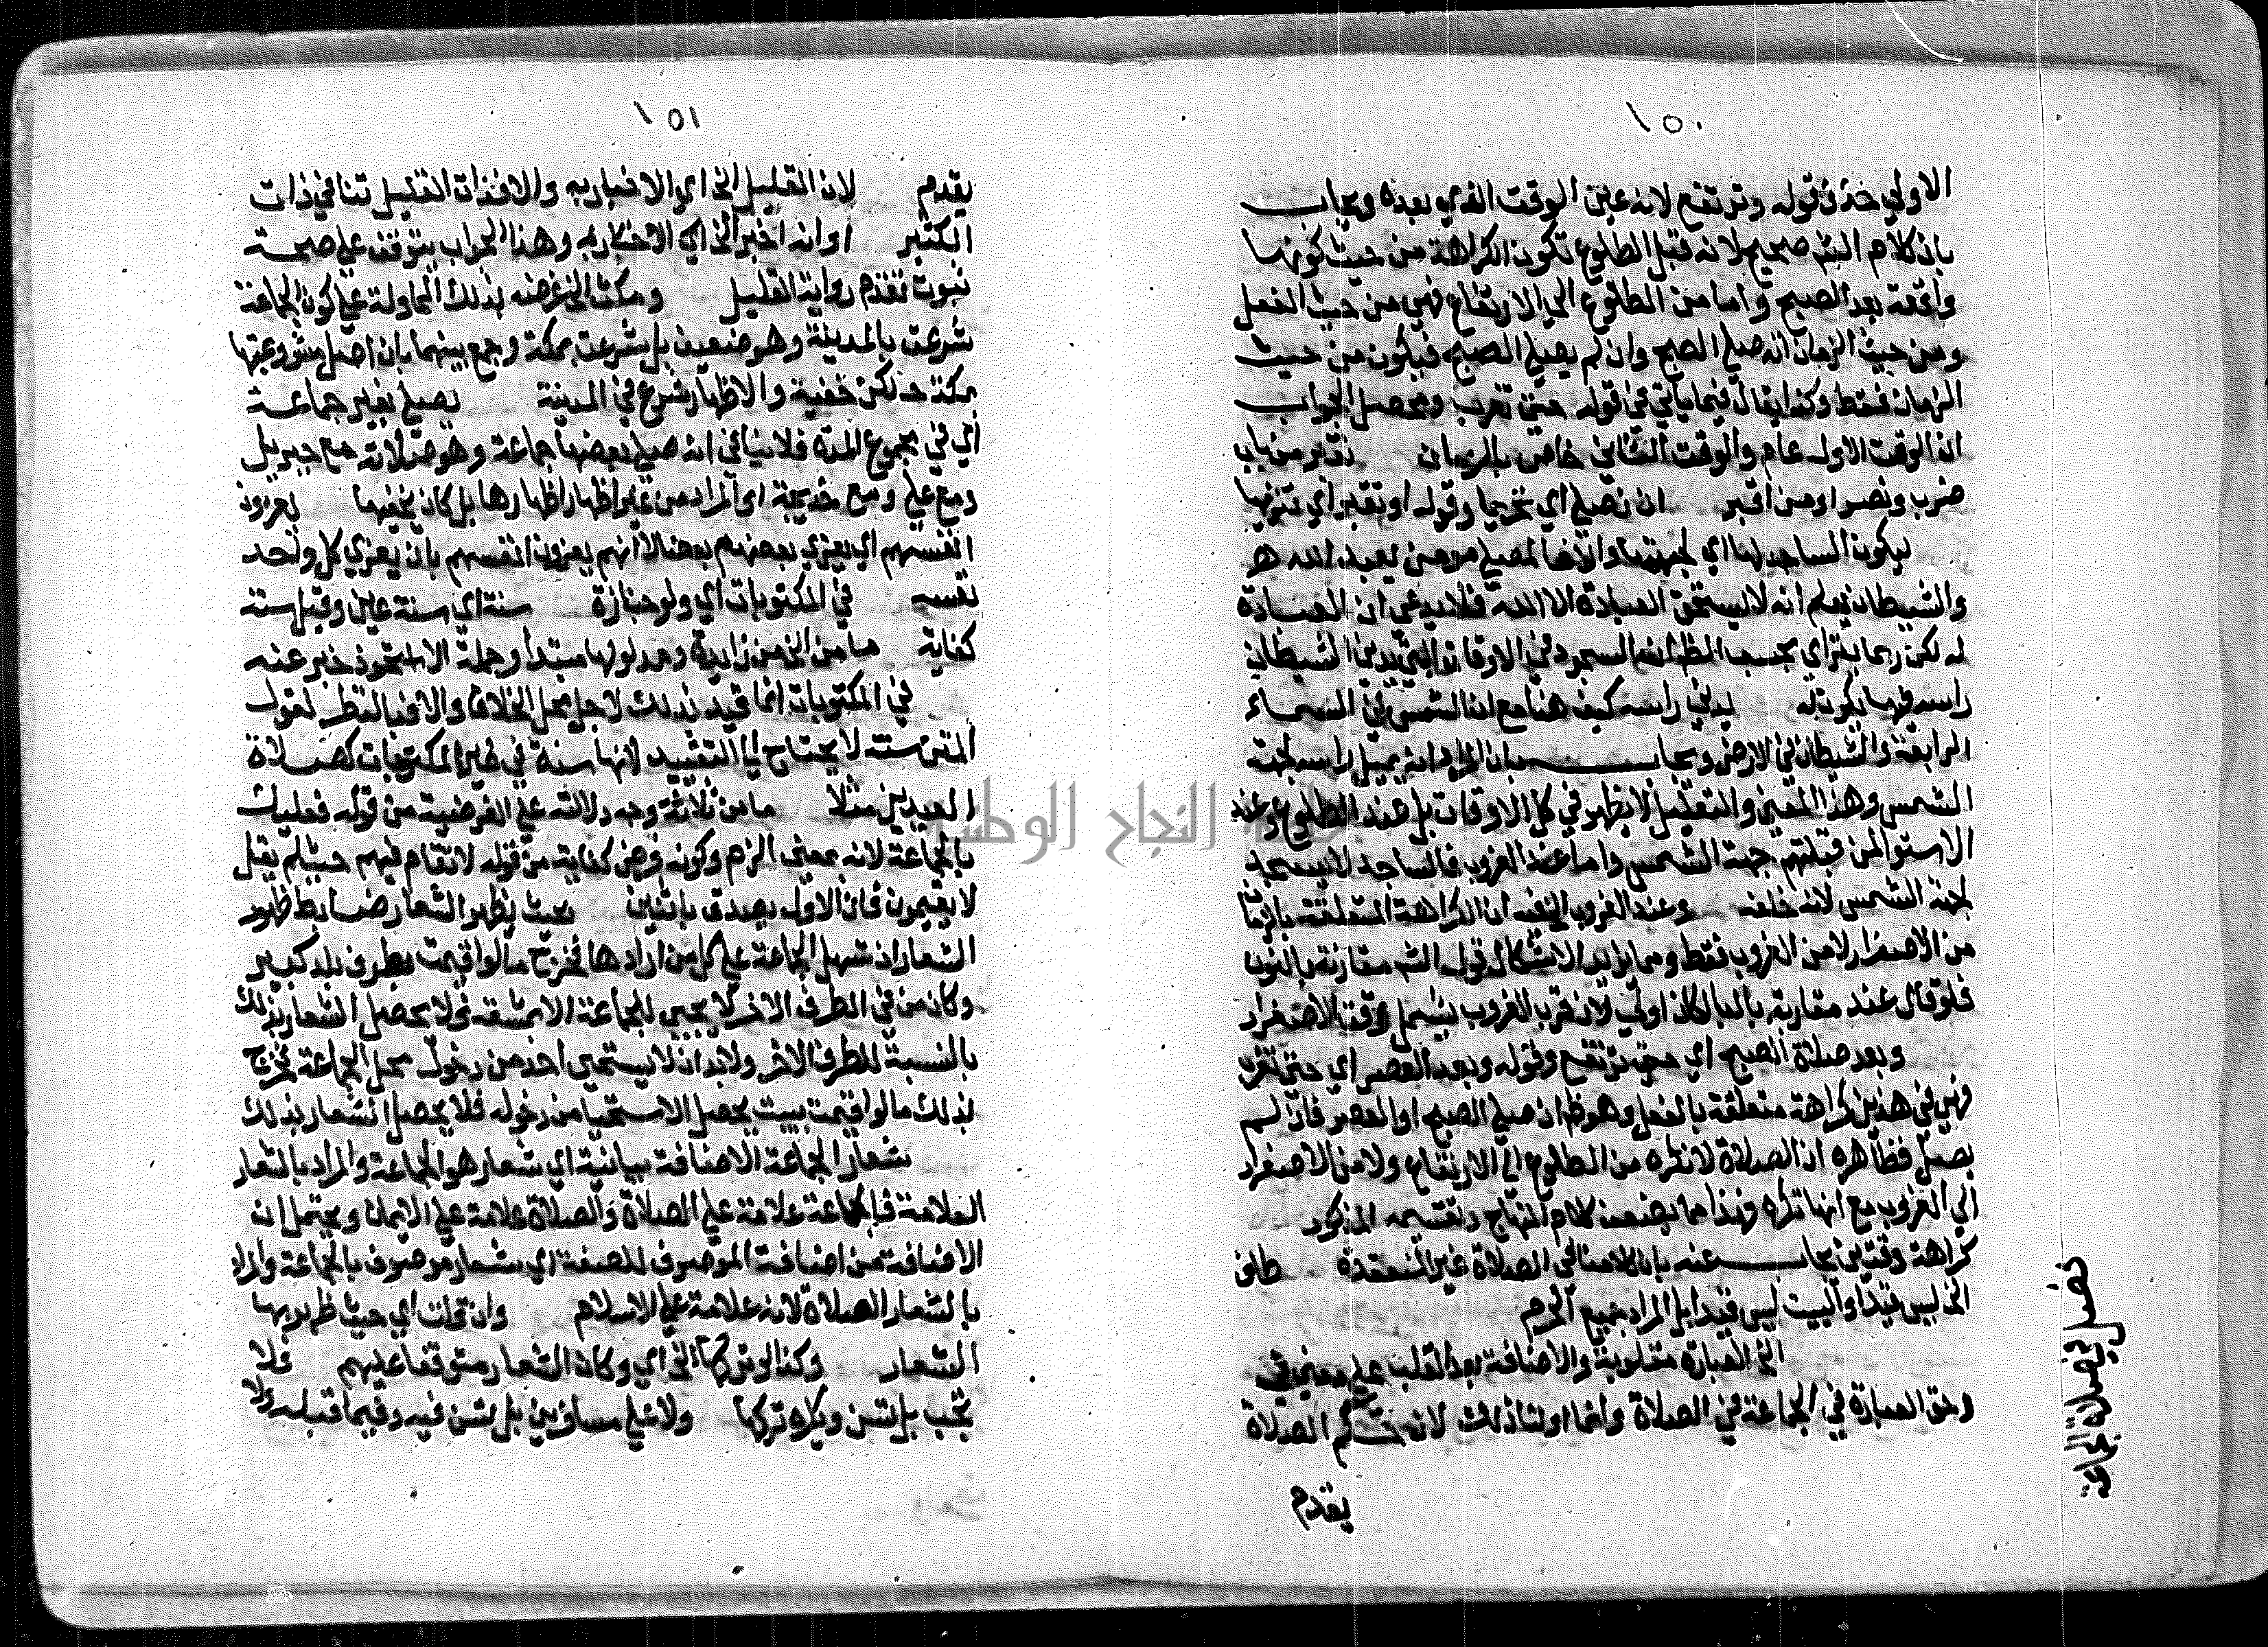 ١٥٠
الاولي حذف قوله وترتفع لانه عين الوقت الذي بعده ويجاب
بان كلام الشم صحيح لانه قبل الطلوع تكون الكراهة من حيث كونها
واقعة بعد الصبح واما من الطلوع الي الارتفاع فهي من حيث الفعل
ومن حيث الزمان انه صلي الصبح وان لم يصلي الصبح فيكون من حيث
الزمان فقط وكذا يقال فيما ياتي في قوله حتي تغرب ومحصل الجواب
ان الوقت الاول عام والوقت الثاني خاص بالزمان نقبر من باب
ضرب ونصر او من اقبر ان نصلي اي تحريما وقوله او نقبر اي تنزيها
ليكون الساجد لها اي لجهتها والا فالمصلي مومن يعبد الله
والشيطان يعلم انه لا يستحق العبادة الا الله فلا يدعي ان العبادة
له لكن ربما يتراي بحسب الظ انه السجود في الاوقات التي يدني الشيطان
راسه فيها يكون له يدني راسه كيف هذا مع ان الشمس في السماء
الرابعة والشيطان في الارض ويجاب بان المراد انه يميل راسه لجهة
الشمس وهذا المعني والتعليل لا يظهر في كل الاوقات بل عند الطلوع وعند
الاستوا لمن قبلتهم جهة الشمس واما عند الغروب فالساجد لا يسجد
لجهة الشمس لانه خلفه وعند الغروب الخ فيه ان الكراهة المتعلقة بالزمان
من الاصفرار لا من الغروب فقط ومما يزيد الاشكال قول الشم مقاربة بالنون
فلو قال عند مقاربة بالبا لكان اولي لان قرب الغروب يشمل وقت الاصفرار
وبعد صلاة الصبح اي حتي ترتفع وقوله وبعد العصر اي حتي تغرب
فهي في هذين كراهة متعلقة بالفعل وهو ظ ان صلي الصبح او العصر فان لم
يصل فظاهره ان الصلاة لا تكره من الطلوع الي الارتفاع ولا من الاصفرار
الي الغروب مع انها تكره فهذا مما يضعف كلام المنهاج وتقسيمه المذكور
كراهة وقتين يجاب عنه بان كلامنا في الصلاة غير المنعقدة طاف
الخ ليس قيدا والبيت ليس قيدا بل المراد جميع الحرم
الخ العبارة مقلوبة والاضافة بعد القلب علي معني في
وحق العبارة في الجماعة في الصلاة وانما اولنا ذلك لانه حكم الصلاة
يقدم
فصل في صلاة الجماعة
١٥١
يقدم لان القليل الخ اي الاخبار به والا فذات القليل تنافي ذات
الكثير او انه اخبر الخ اي الاخبار به وهذا الجواب يتوقف علي صحة
ثبوت تقدم رواية القليل ومكث الخ غرضه بذلك المحاولة علي كون الجماعة
شرعت بالمدينة وهو ضعيف بل شرعت بمكة وجمع بينهما بان اصل مشروعيتها
بمكة لكن خفية والاظهار شرع في المدينة يصلي بغير جماعة
اي في مجموع المدة فلا ينافي انه صلي بعضها جماعة وهو صلاته مع جبريل
ومع علي ومع خديجة اي المراد من غير اظهار اظهارها بل كان يخفيها يعزون
انفسهم اي يعزي بعضهم بعضا لا انهم يعزون انفسهم بان يعزي كل واحد
نفسه في المكتوبات اي ولو جنازة سنة اي سنة عين وقيل سنة
كفاية ما من الخ من زايدة ومدخولها مبتدأ وجملة الا استحوذ خبر عنه
في المكتوبات انما قيد بذلك لاجل محل الخلاف والا فبالنظر لقول
المتن سنة لا يحتاج الي التقييد لانها سنة في غير المكتوبات كصلاة
العيدين مثلا ما من ثلاثة وجه دلالته علي الفرضية من قوله فعليك
بالجماعة لانه بمعني الزم وكونه فرض كفاية من قوله لا تقام فيهم حيث لم يقل
لا يقيمون فان الاول يصدق باثنين بحيث يظهر الشعار ضابط ظهور
الشعار ان تسهل الجماعة علي كل من ارادها فخرج ما لو اقيمت بطرف بلد كبير
وكان من في الطرف الاخر لا يجيي للجماعة الا بمشقة فلا يحصل الشعار بذلك
بالنسبة للطرف الاخر ولا بد ان لا يستحي احد من دخول محل الجماعة فخرج
بذلك ما لو اقيمت ببيت يحصل الاستحيا من دخوله فلا يحصل الشعار بذلك
شعار الجماعة الاضافة بيانية اي شعار هو الجماعة والمراد بالشعار
العلامة فالجماعة علامة علي الصلاة والصلاة علامة علي الايمان ويحتمل ان
الاضافة من اضافة الموصوف للصفة اي شعار موصوف بالجماعة والمراد
بالشعار الصلاة لانه علامة علي الاسلام وان قلت اي حيث ظهر بها
الشعار وكذا لو تركها الخ اي وكان الشعار متوقفا عليهم فلا
تجب بل تسن ويكره تركها ولا علي مسافرين بل تسن فيه وفيما قبله ولا
النجاح الوطنية